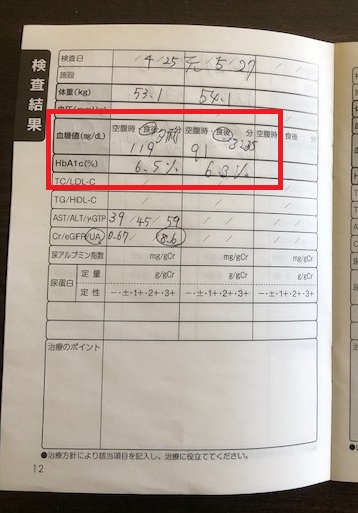 検査結果
検査日 4/25 元/5/27
施設
体重(kg) 53.1 54.1
血糖値(mg/dL) 空腹時 食後 分 空腹時 食後 分 空腹時 食後 分
119 91
HbA1c(%) 6.5% 6.3%
TC/LDL-C / / /
TG/HDL-C / / /
AST/ALT/γ-GTP 39/45/59 / / / /
Cr/eGFR/UA 0.67/ /8.6 / / / /
尿アルブミン指数 mg/gCr mg/gCr mg/gCr
尿蛋白 定量 g/gCr g/gCr g/gCr
定性 −・±・1+・2+・3+ −・±・1+・2+・3+ −・±・1+・2+・3+
治療のポイント
●治療方針により該当項目を記入し、治療に役立ててください。
12